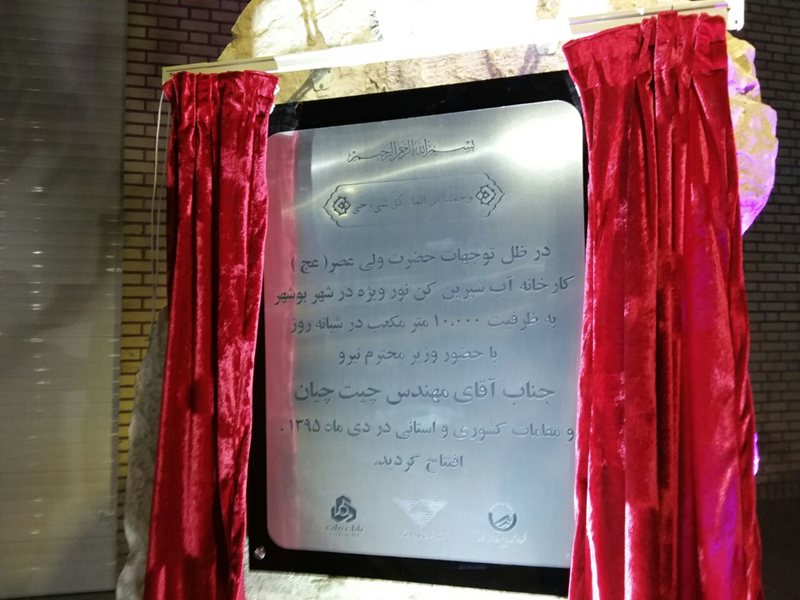 بسم الله الرحمن الرحیم
و جعلنا من الماء کل شیء حی
در ظل توجهات حضرت ولی عصر( عج )
کارخانه آب شیرین کن نور ویژه در شهر بوشهر
به ظرفیت ۱۰،۰۰۰ متر مکعب در شبانه روز
با حضور وزیر محترم نیرو
جناب آقای مهندس چیت چیان
و مقامات کشوری و استانی در دی ماه ۱۳۹۵ .
افتتاح گردید.